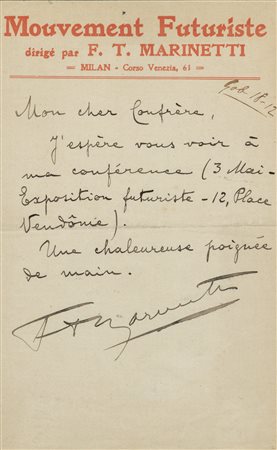 Mouvement Futuriste
dirigé par F. T. MARINETTI
MILAN - Corso Venezia, 61
Mon cher Confrère,
J'espère vous voir à
ma conférence (3 Mai-
Exposition futuriste - 12, Place
Vendôme).
Une chaleureuse poignée
de main.
F T Marinetti